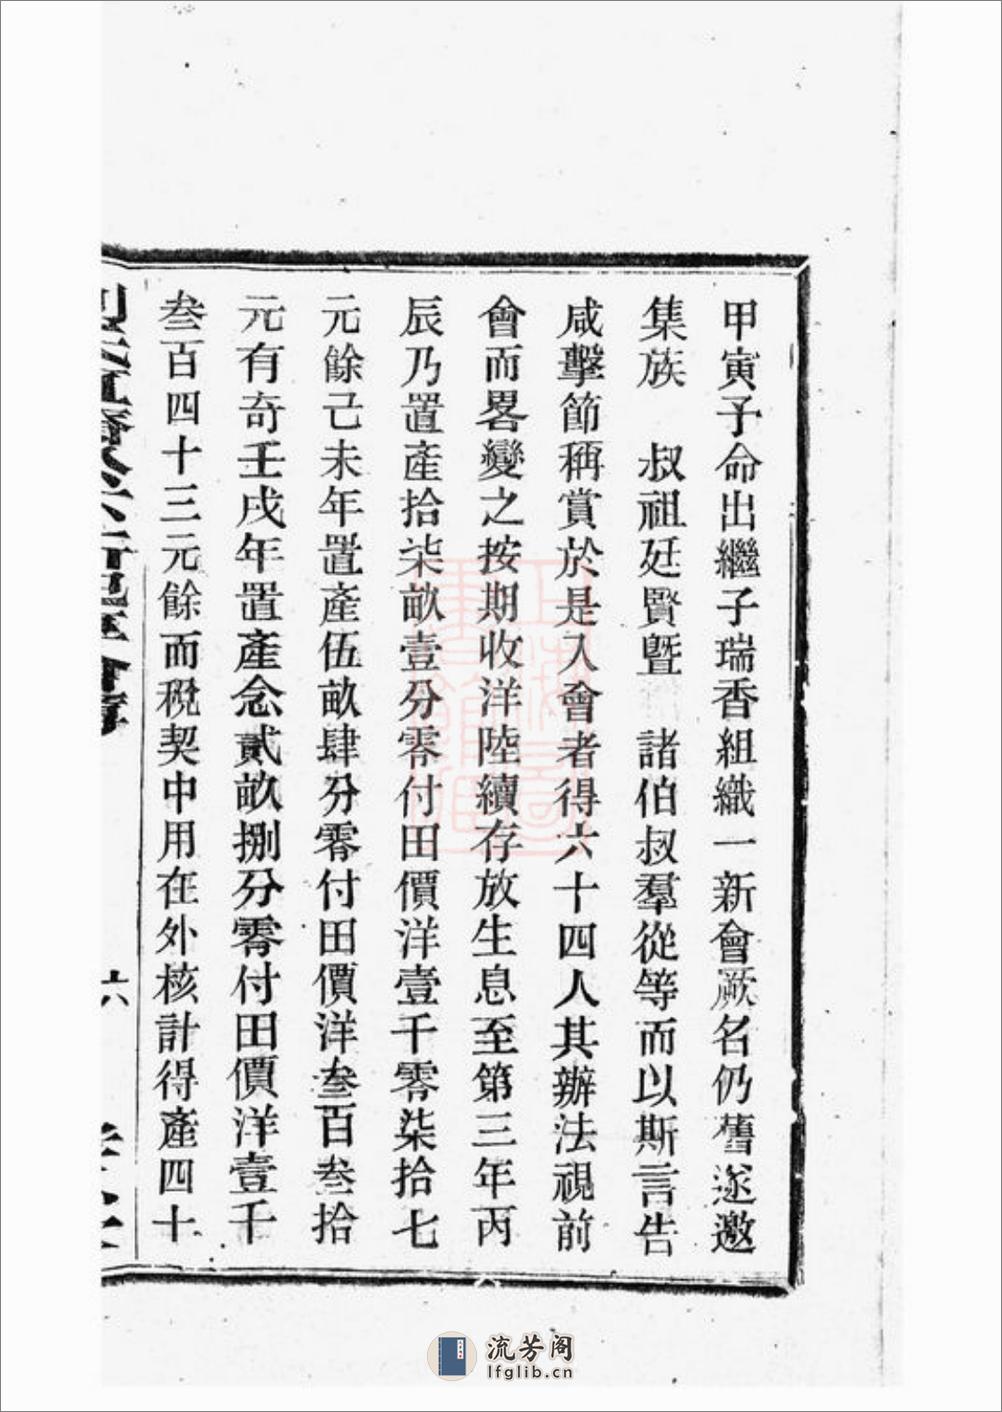 甲寅予命出繼子瑞香組織一新會厥名仍舊遂邀
集族　叔祖廷賢暨　諸伯叔羣從等而以斯言告
咸擊節稱賞於是入會者得六十四人其辦法視前
會而畧變之按期收洋陸續存放生息至第三年丙
辰乃置產拾柒畝壹分零付田價洋壹千零柒拾七
元餘己未年置產伍畝肆分零付田價洋叁百叁拾
元有奇壬戌年置產念貳畝捌分零付田價洋壹千
叁百四十三元餘而稅契中用在外核計得產四十
六
流芳阁
lfglib.cn